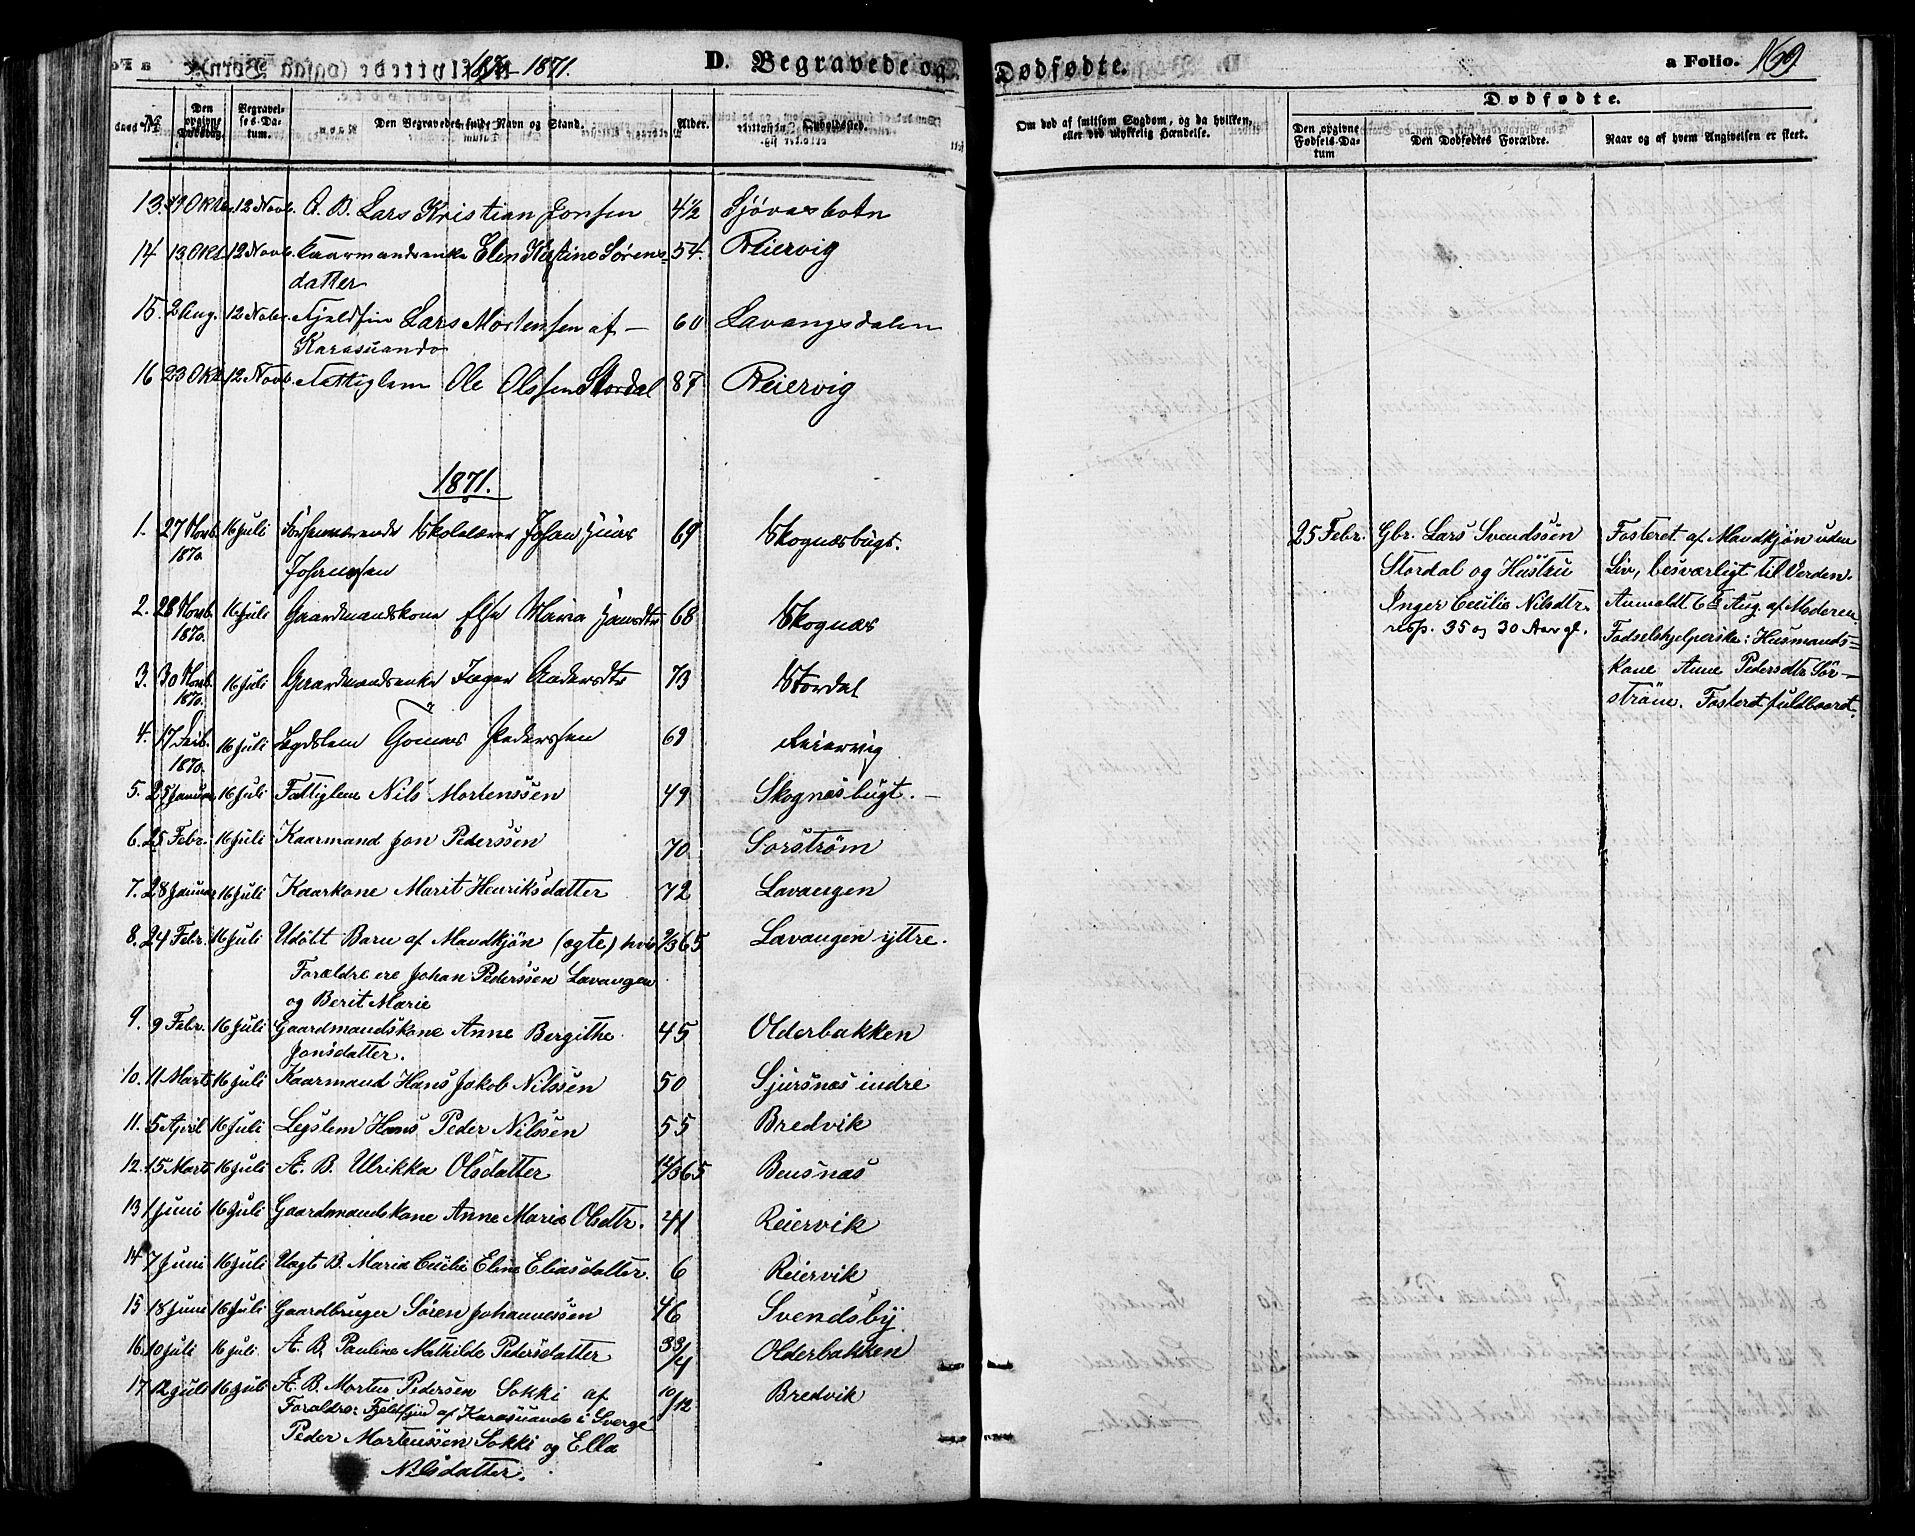 1871. D. Begravede og Dødfødte. a Folio. 169
Den opgivne Dødsdag. Begravelses-Datum. Den Begravedes fulde Navn og Stand. Alder. Opholdssted.
Om død af smitsom Sygdom, og da hvilken, eller ved ulykkelig Hændelse.
Dødfødte.
Den opgivne Fødsels-Datum Den Dødfødtes Forældre. Naar og af hvem Angivelsen er skeet.
13. 29 Okt. 12 Novb. Æ. B. Lars Kristian Jonsen 4½ Sjøvasbotn
14 13 Okt. 12 Novb. Kaarmandsenke Elen Kristine Sørens=
datter 54. Reiervig
15. 2 Aug. 12 Nobr. Fjeldfin Lars Mortensen af — 60 Lavangsdalen
Karasuando
16 23 Okt. 12 Novb. Fattiglem Ole Olssen Stordal 87 Reiervig
1871.
1. 27 Novb. 16 Juli Skolelærer Johan 69 Skognæsbugt.
1870. Johannessen
2. 28 Novb. 16 Juli Gaardmandskone Else Maria Hansdtr 68 Skognæs
1870.
3. 30 Novb. 16 Juli Gaardmandsenke Inger Andersdtr 73 Stordal
1870.
4. 17 16 Juli Lægdslem Tomas Pederssen 69 Reiervig
1870.
5. 25 Januar 16 Juli Fattiglem Nils Mortenssen 49 Skognæsbugt. —
6. 25 Febr. 16 Juli Kaarmand Jon Pederssen 70 Sorstrøm
7. 28 Januar 16 Juli Kaarkone Marit Henriksdatter 72 Lavangen
8. 24 Febr. 16 Juli Udöbt Barn af Mandkjøn (ægte) hvis 2/365 Lavangen yttre.
Forældre ere Johan Pederssen Lavangen
og Berit Marie
9. 9 Febr. 16 Juli Gaardmandskone Anne Bergithe 45 Olderbakken
Jonsdatter.
10. 11 Marts 16 Juli Kaarmand Hans Jakob Nilssen 50 Sjursnæs indre
11. 5 April 16 Juli Legslem Hans Peder Nilssen 55 Bredvik
12. 15 Marts 16 Juli Æ. B. Ulrikka Olsdatter 12/365 Bensnæs
13 1 Juni 16 Juli Gaardmandskone Anne Maria Olsdtr. 41 Reiervik
14 7 Juni 16 Juli Uægt B. Maria Cecilie Eline Eliasdatter. 6 Reiervik
15 18 Juni 16 Juli Gaardbruger Søren Johannessen 46 Svendsby
16. 10 Juli 16 Juli. Æ. B. Pauline Mathilde Pedersdatter 3 3/4 Olderbakken
17. 12 Juli 16 Juli Æ. B. Mortus Pedersen Sokki af 10/12 Bredvik
Foraldre: Fjeldfind af Karasuando i Sverge
Peder Mortenssen Sokki og Ella
Nilsdatter.
25 Febr. Gbr. Lars Svendssen
Stordal og Hustru
Inger Cecilie Nilsdtr.
resp. 35 og 30 Aar gl.
Fosteret af Mandkjøn uden
Liv, besværligt til Verden.
Anmeldt 6te Aug. af Moderen
Fødselshjelperske: Husmands=
kone Anne Pedersdtr Sör—
ström. Fosteret fuldbaaret.